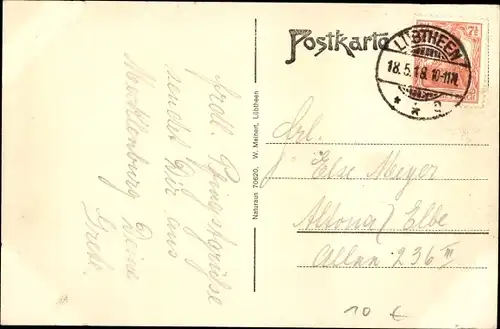 Postkarte
7½
LÜBTHEEN
18.5.18. 10-11V.
* * a
Frl.
Else Meyer
Altona/Elbe
Allee 236 III
frdl. Pfingstgrüße
sendet Dir aus
Mecklenburg Deine
Gret.
Naturaun 70620, W. Meinert, Lübtheen
10 €